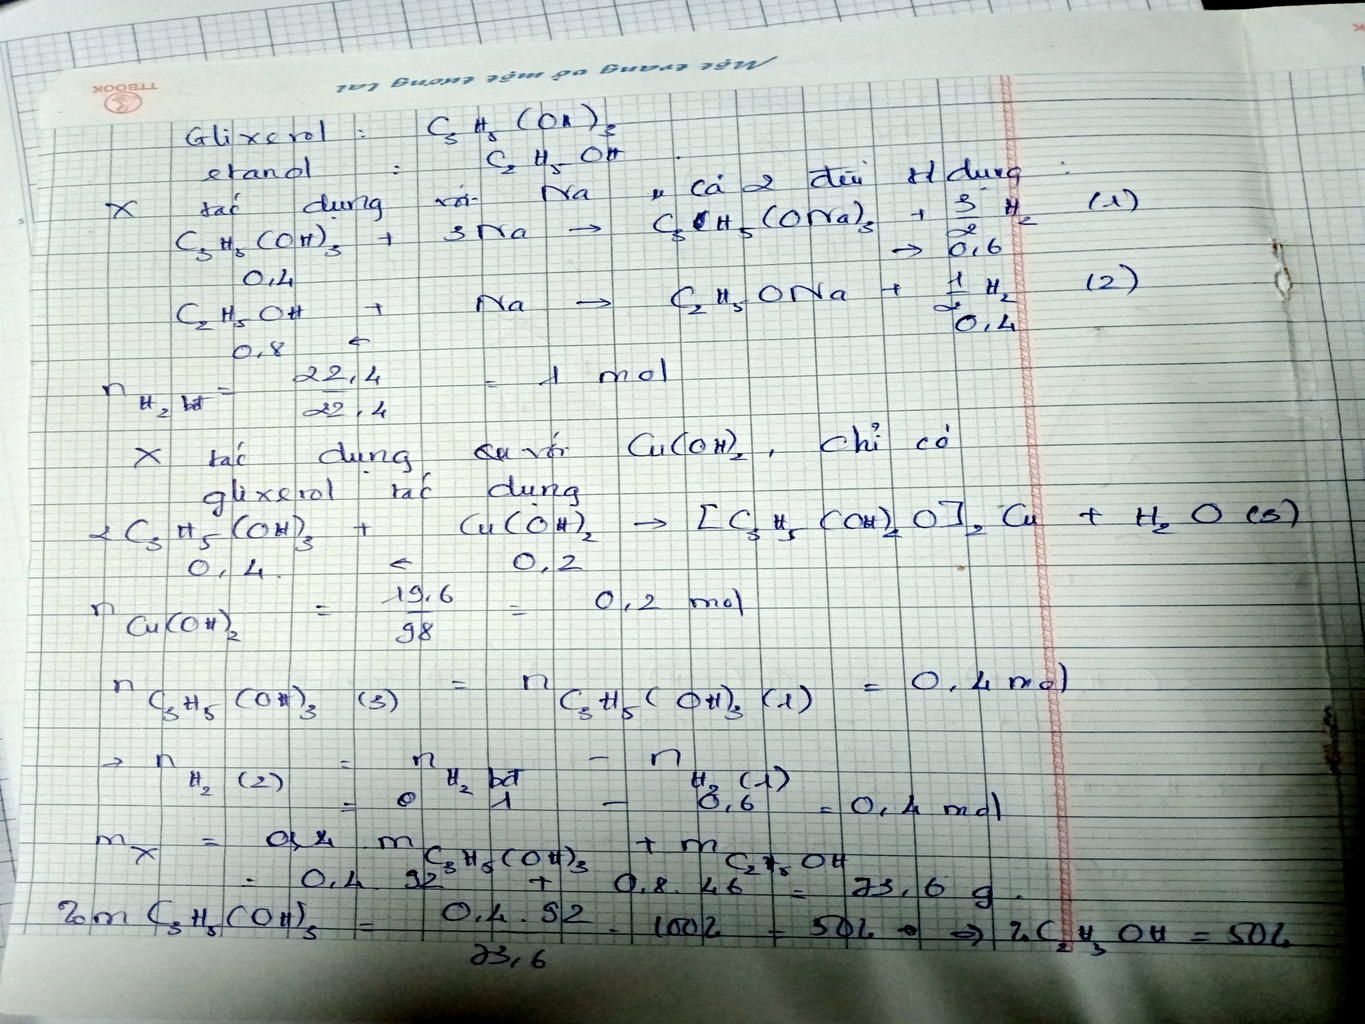 Một trang vở một tương lai
TTBOOK
Glixerol : C3H5(OH)3
etanol : C2H5OH
X tác dụng với Na, cả 2 đều t/dụng :
C3H5(OH)3 + 3Na → C3H5(ONa)3 + 3/2 H2 (1)
0,4 → 0,6
C2H5OH + Na → C2H5ONa + 1/2 H2 (2)
0,8 ← 0,4
nH2 bđ = 22,4/22,4 = 1 mol
X tác dụng với Cu(OH)2, chỉ có
glixerol tác dụng
2C3H5(OH)3 + Cu(OH)2 → [C3H5(OH)2O]2Cu + H2O (3)
0,4 ← 0,2
nCu(OH)2 = 19,6/98 = 0,2 mol
nC3H5(OH)3 (3) = nC3H5(OH)3 (1) = 0,4 mol
→ nH2 (2) = nH2 bđ - nH2 (1)
= 1 - 0,6 = 0,4 mol
mX = mC3H5(OH)3 + mC2H5OH
= 0,4.92 + 0,8.46 = 73,6 g.
%m C3H5(OH)3 = 0,4.92/73,6 . 100% = 50% ⇒ %C2H5OH = 50%